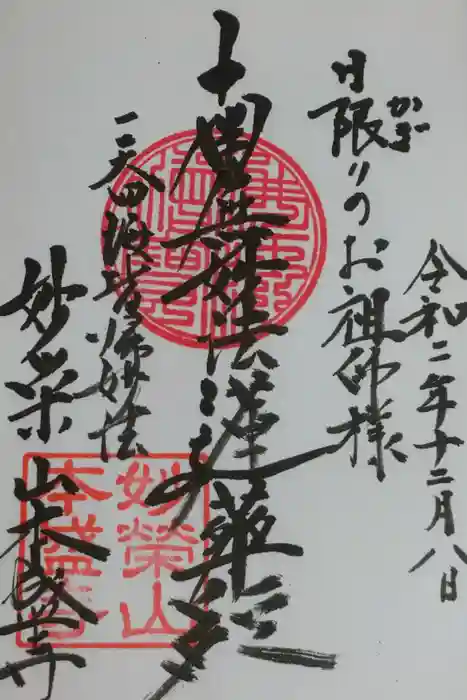 令和二年十二月八日
日限りのお祖師様
かぎ
南無妙法蓮華経
一天四海皆帰妙法
妙栄山本盛寺
妙榮山
本盛寺